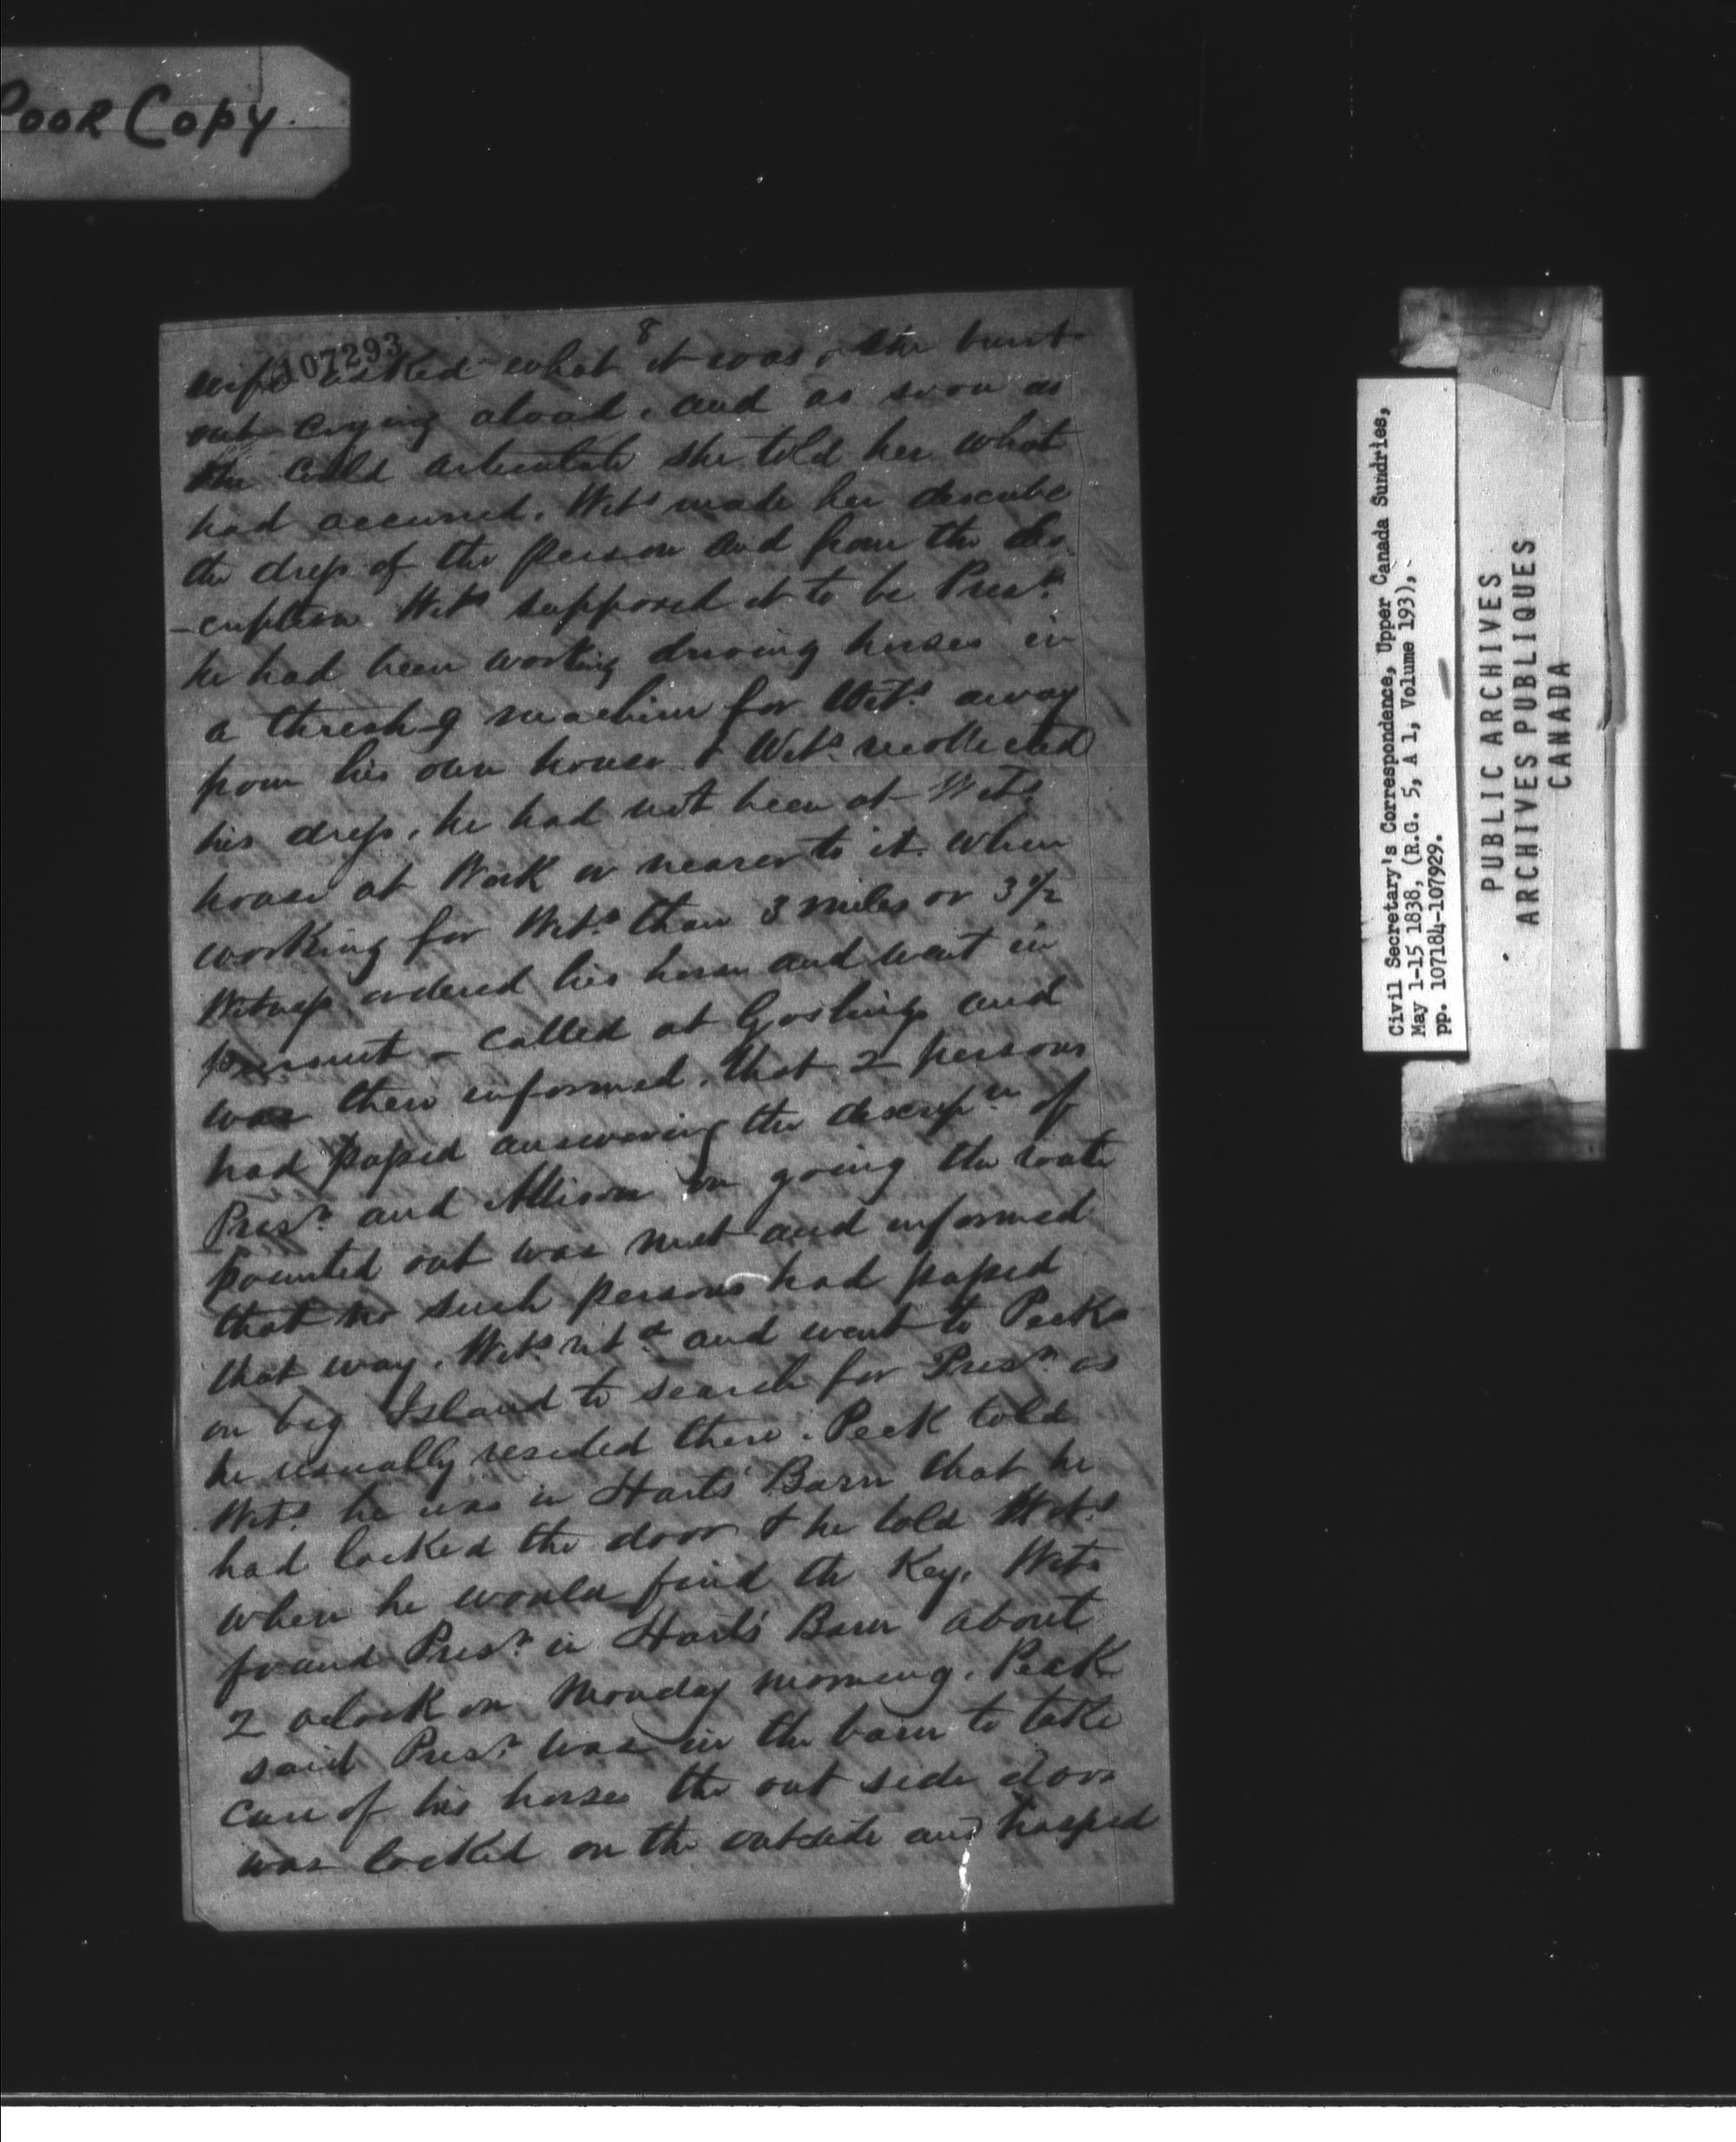 POOR Copy.
107293
8
wife asked what it was, she burst
out crying aloud, and as soon as
she could articulate she told her what
had occurred. Wits made her describe
the dress of the person and from the des
-cription Wits supposed it to be Presr.
he had been working driving horses in
a threshg machine for Wits. away
from his own house & Wits. recollected
his dress, he had not been at Wits.
house at Work or nearer to it when
working for Wits. than 3 miles or 3 1/2
Witness ordered his horse and went in
pursuit - called at Goslings and
was then informed that 2 persons
had passed answering the descripn of
Presr. and Allison on going the route
pointed out was met and informed
that no such persons had passed
that way. Wits. retd and went to Peeks
on big Island to search for Presr. as
he usually resided there. Peek told
Wits. he was in Harts' Barn that he
had locked the door & he told Wits.
where he would find the Key. Wits
found Presr. in Harts' Barn about
2 oclock on Monday morning. Peek
said Presr. was in the barn to take
care of his horses the out side door
was locked on the outside and hasped
Civil Secretary's Correspondence, Upper Canada Sundries,
May 1-15 1838, (R.G. 5, A 1, Volume 193),
pp. 107184-107929.
PUBLIC ARCHIVES
ARCHIVES PUBLIQUES
CANADA